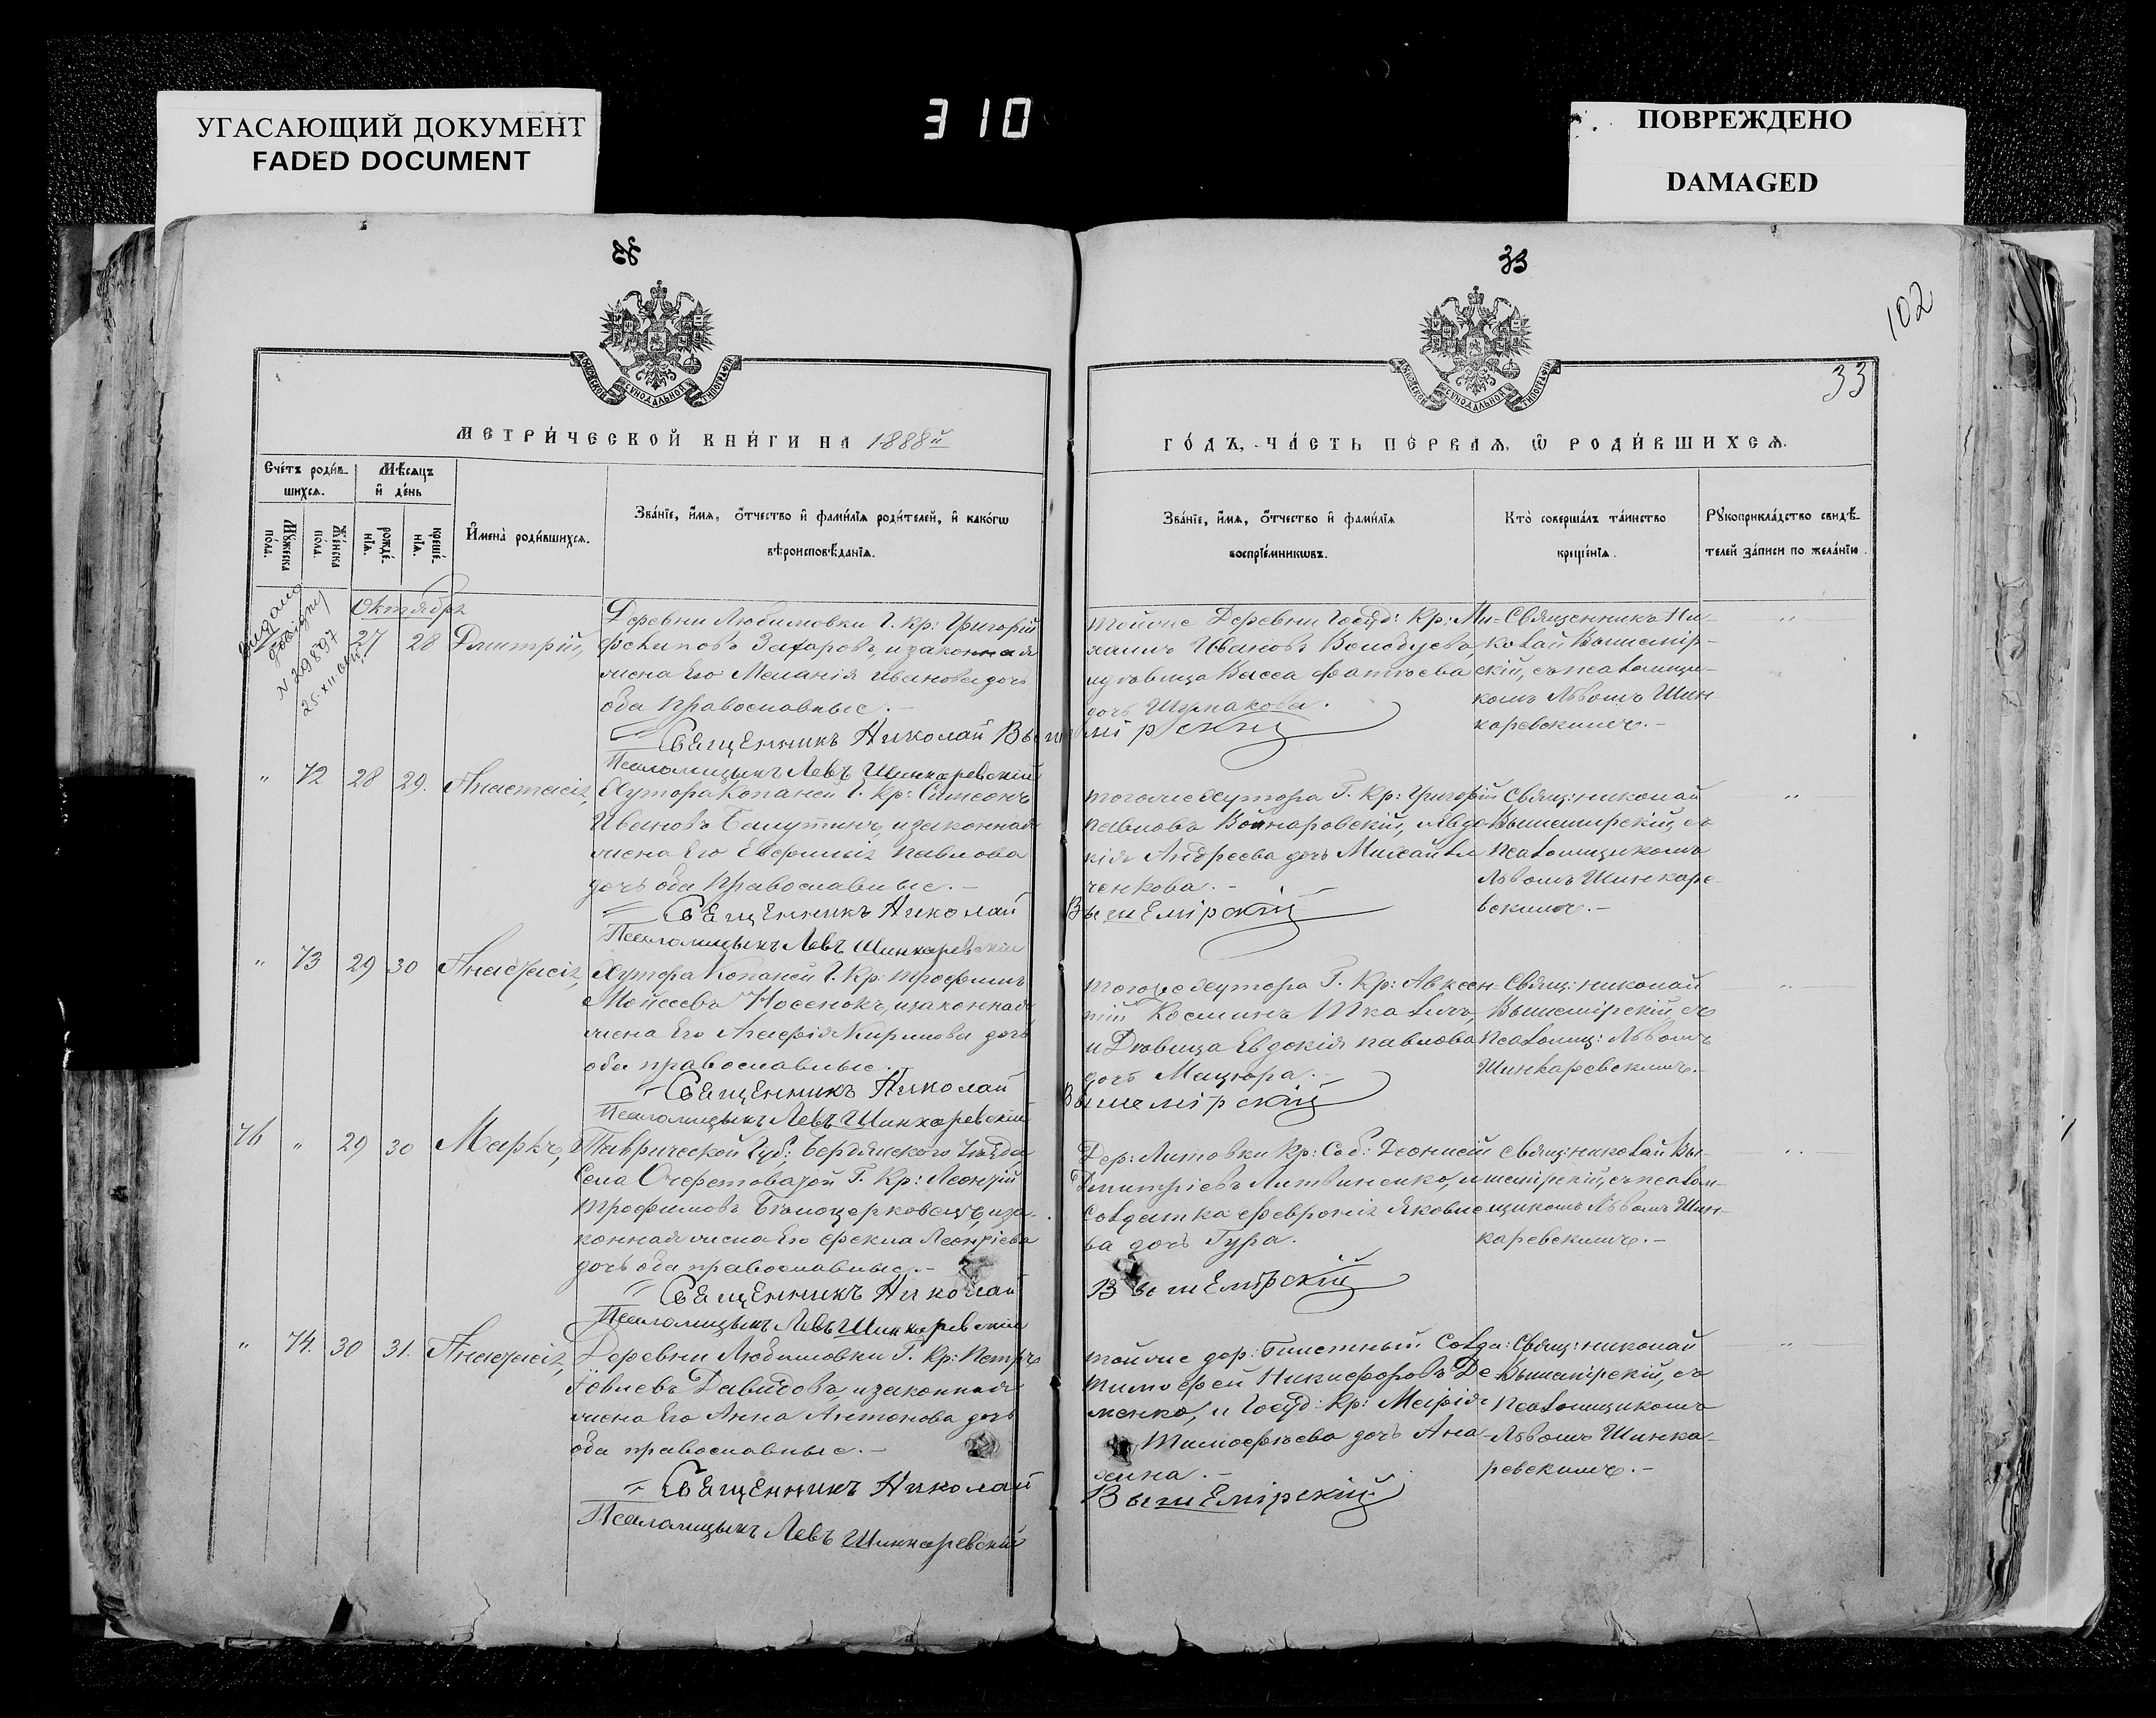 УГАСАЮЩИЙ ДОКУМЕНТ
FADED DOCUMENT
310
ПОВРЕЖДЕНО
DAMAGED
33
102
33
МЕТРИ́ЧЕСКОЙ КНИ́ГИ НА 1888й
ГО́ДЪ, ЧА́СТЬ ПЕ́РВАѦ, Ѿ РОДИ́ВШИХСѦ.
Сче́тъ роди́в-
шихсѧ.
Мѣ́сѧцъ
и҆ де́нь
Мꙋжеска
по́ла.
Же́нска
по́ла.
рожде́-
нїѧ.
креще́-
нїѧ.
И҆мена̀ роди́вшихсѧ.
Зва́нїе, и҆́мѧ, ѻ҆́тчество и҆ фами́лїѧ роди́телей, и҆ како́гѡ
вѣроисповѣ́данїѧ.
Зва́нїе, и҆́мѧ, ѻ҆́тчество и҆ фами́лїѧ
воспрїе́мникѡвъ.
Кто̀ соверша́лъ та́инство
креще́нїѧ.
Рꙋкоприкла́дство свидѣ́-
телей за́писи по жела́нїю.
N 29897
Октябрь
27 28 Дмитрій,
Деревни Любимовки Г. кр: Григорій
Захаровъ, и законная
жена Его Меланія Иванова дочь
оба Православные.-
Священникъ Николай Вышемірскій
Псаломщикъ Левъ Шинкаревскій
тойже Деревни Госуд: Кр: Ми-
хаилъ Ивановъ
дѣвица Васса
дочь
Священникъ Ни-
колай Вышемір-
скій, съ псаломщи-
комъ Львомъ Шин-
каревскимъ.-
„ 72 28 29. Анастасія,
Хутора Копаней Г. Кр: Симеонъ
Ивановъ и законная
жена Его Евфимія Павлова
дочь оба Православные.-
Священникъ Николай Вышемірскій
Псаломщикъ Левъ Шинкаревскій
тогоже хутора Г. Кр: Григорій
Павловъ Войнаровскій, Евдо-
кія Андреева дочь Михайли-
ченкова.-
Свящ: Николай
Вышемирскій, съ
Псаломщикомъ
Львомъ Шинкаре-
вскимъ.-
„ 73 29 30 Анастасія,
Хутора Копаней Г. Кр: Трофимъ
Мойсеевъ Носенокъ, и законная
жена Его Агафія Кирилова дочь
оба православные.-
Священникъ Николай Вышемірскій
Псаломщикъ Левъ Шинкаревскій
тогоже хутора Г. Кр: Авксен-
тій Косминъ Ткаличъ,
и Дѣвица Евдокія Павлова
дочь Мацюра.-
Свящ: Николай
Вышемірскій, съ
Псаломщ: Львомъ
Шинкаревскимъ.-
76 „ 29 30 Маркъ,
Таврической Губ: Бердянского Уѣзда
Села Очеретоватой Г. Кр: Леонтій
Трофимовъ Бѣлоцерковецъ, и за-
конная жена Его Фекла Леонтіева
дочь оба православные.-
Священникъ Николай Вышемірскій
Псаломщикъ Левъ Шинкаревскій
Дер: Литовки Кр: Соб: Деонисій
Дмитріевъ Литвиненко, и
Солдатка Февронія Яковле-
ва дочь Гура.
Свящ: Николай Вы-
шемірскій, съ псалом-
щикомъ Львомъ Шин-
каревскимъ.-
„ 74. 30 31. Анастасія,
Деревни Любимовки Г. Кр: Петръ
Іовлевъ Давидовъ, и законная
жена Его Анна Антонова дочь
оба православные.-
Священникъ Николай Вышемірскій
Псаломщикъ Левъ Шинкаревскій
тойже дер: Билетный Солда:
Тимофей Никифоровъ Де-
менко, и Госуд: Кр: Марія
Тимофѣева дочь Ана-
хина.-
Свящ: Николай
Вышемірскій, съ
Псаломщикомъ
Львомъ Шинка-
ревскимъ.-